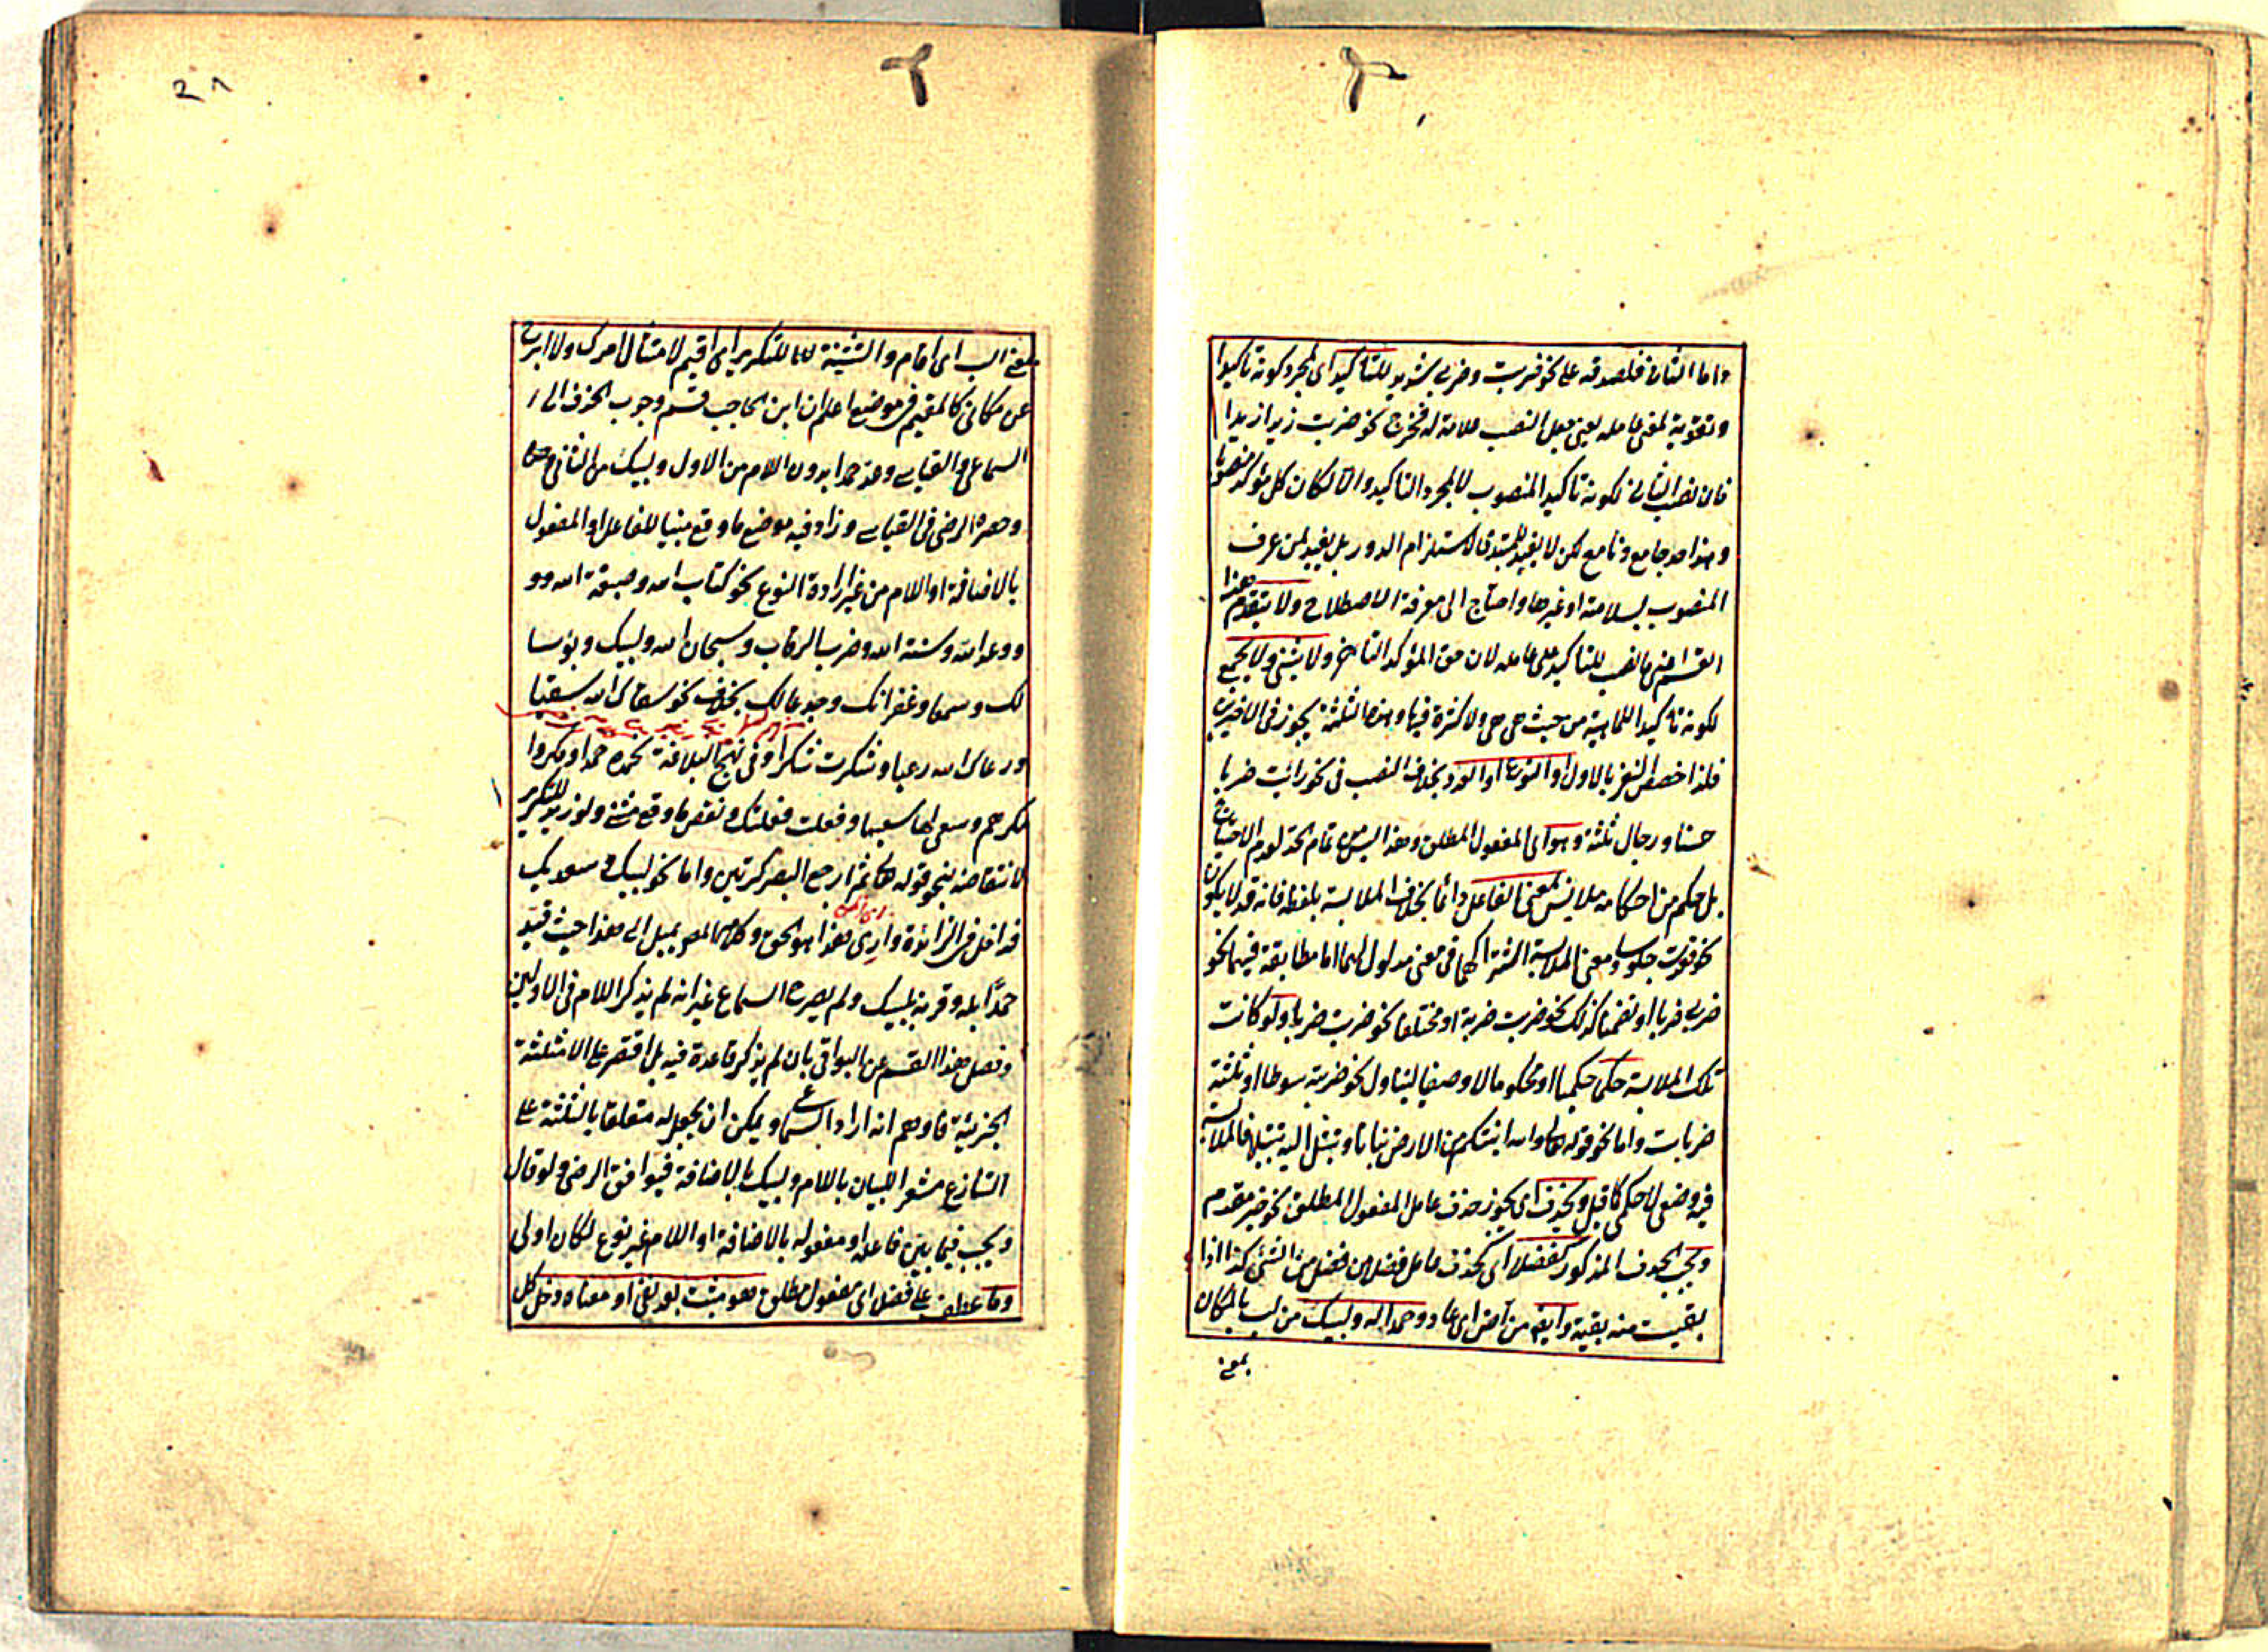 واما الثانى فلصدقه على نحو ضربت وضربى بشديد للتاكيد اى لمجرد كونه تاكيدا
وتقوية لمعنى عامله يعنى جعل النصب علامة له فخرج نحو ضربت زيدا زيدا
فان نصب الثانى لكونه تاكيد المنصوب لا لمجرد التاكيد والا لكان كل مؤكد منصوبا
وهذا حد جامع ومانع لكن لا يفيد للمبتدى لاستلزام الدور بل يفيد لمن عرف
المنصوب بسلامته او غيرها واحتاج الى معرفة الاصطلاح ولا يتقدم هذا
القسم اعنى ما نصب للتاكيد على عامله لان حق المؤكد التاخر ولا يثنى ولا يجمع
لكونه تاكيدا للماهية من حيث هى هى ولا كثرة فيها وهذه الثلثة يجوز فى الاخيرين
فلذا خصص النفى بالاول او النوع او العدد بخلاف النصب فى نحو رايت ضربا
حسنا ورجال ثلثة وهو اى المفعول المطلق وهذا ليس من تمام الحد لعدم الاحتياج
بل حكم من احكامه ملابس لمعنى الفاعل دائما بخلاف الملابسة بلفظه فانه قد لا يكون
نحو قعدت جلوسا ومعنى الملابسة اشتراكهما فى معنى مدلول لهما اما مطابقة فيهما نحو
ضربى ضربا او تضمنا كذلك نحو ضربت ضربة او مختلفا نحو ضربت ضربا ولو كانت
تلك الملابسة حكمى حكميا او محكوما لا وصفيا ليتناول نحو ضربته سوطا او ثلثة
ضربات واما نحو قوله تعالى والله انبتكم من الارض نباتا وتبتل اليه تبتيلا فالملابسة
فيه وضعى لا حكمى كما قيل ويحذف اى يجوز حذف عامل المفعول المطلق نحو خير مقدم
ويجب الحذف المذكور كفضلا اى كحذف عامل فضلا من فضل من الشئ كذا اذا
بقيت منه بقية وايضا من آض اى عاد وحمدا له ولبيك من لب بالمكان
بمعنى
بمعنى الب اى اقام والتثنية للتكرير اى اقيم لامتثال امرك ولا ابرح
عن مكانى كالمقيم فى موضع اعلم ان ابن الحاجب قسم وجوب الحذف الى
السماعى والقياسى وعد حمدا بدون اللام من الاول ولبيك من الثانى
وحصره الرضى فى القياسى وزاد فيه موضع ما وقع مبنيا للفاعل او المفعول
بالاضافة او اللام من غير ارادة النوع نحو كتاب الله وصبغة الله و
ووعد الله وسنة الله وضرب الرقاب وسبحان الله ولبيك وبؤسا
لك وسمعا وغفرانك وجدعا لك بخلاف نحو سقاك الله سقيا
ورعاك الله رعيا وشكرت شكرا وفى نهج البلاغة نحمده حمدا ومكروا
مكرهم وسعى لها سعيها وفعلت فعلتك ونقص ما وقع مثنى ولو زيد للتكرير
لانتقاضه بنحو قوله تعالى ثم ارجع البصر كرتين واما نحو لبيك وسعديك
فداخل فى الزائدة وارى هذا هو الحق وكلام المص يميل الى هذا حيث قيد
حمدا بله وقرنه بلبيك ولم يصرح السماع غير انه لم يذكر اللام فى الاولين
وفصل هذا القسم عن البواقى بان لم يذكر قاعدة فيه بل اقتصر على الامثلة
الجزئية فاوهم انه اراد السماع ويمكن ان يجعل له متعلقا بالثلثة على
التنازع مشعرا للبيان باللام ولبيك بالاضافة فيوافق الرضى ولو قال
ويجب فيما بين فاعله او مفعوله بالاضافة او اللام غير نوع لكان اولى
وما عطف على فضلا اى مفعول مطلق هو مثبت بعد نفى او معناه دخل كل